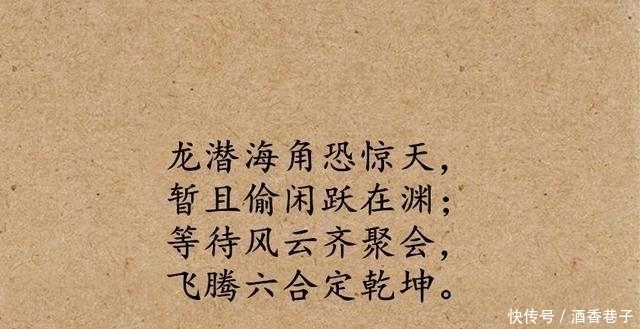 龙潜海角恐惊天，
暂且偷闲跃在渊；
等待风云齐聚会，
飞腾六合定乾坤。
快传号／酒香巷子